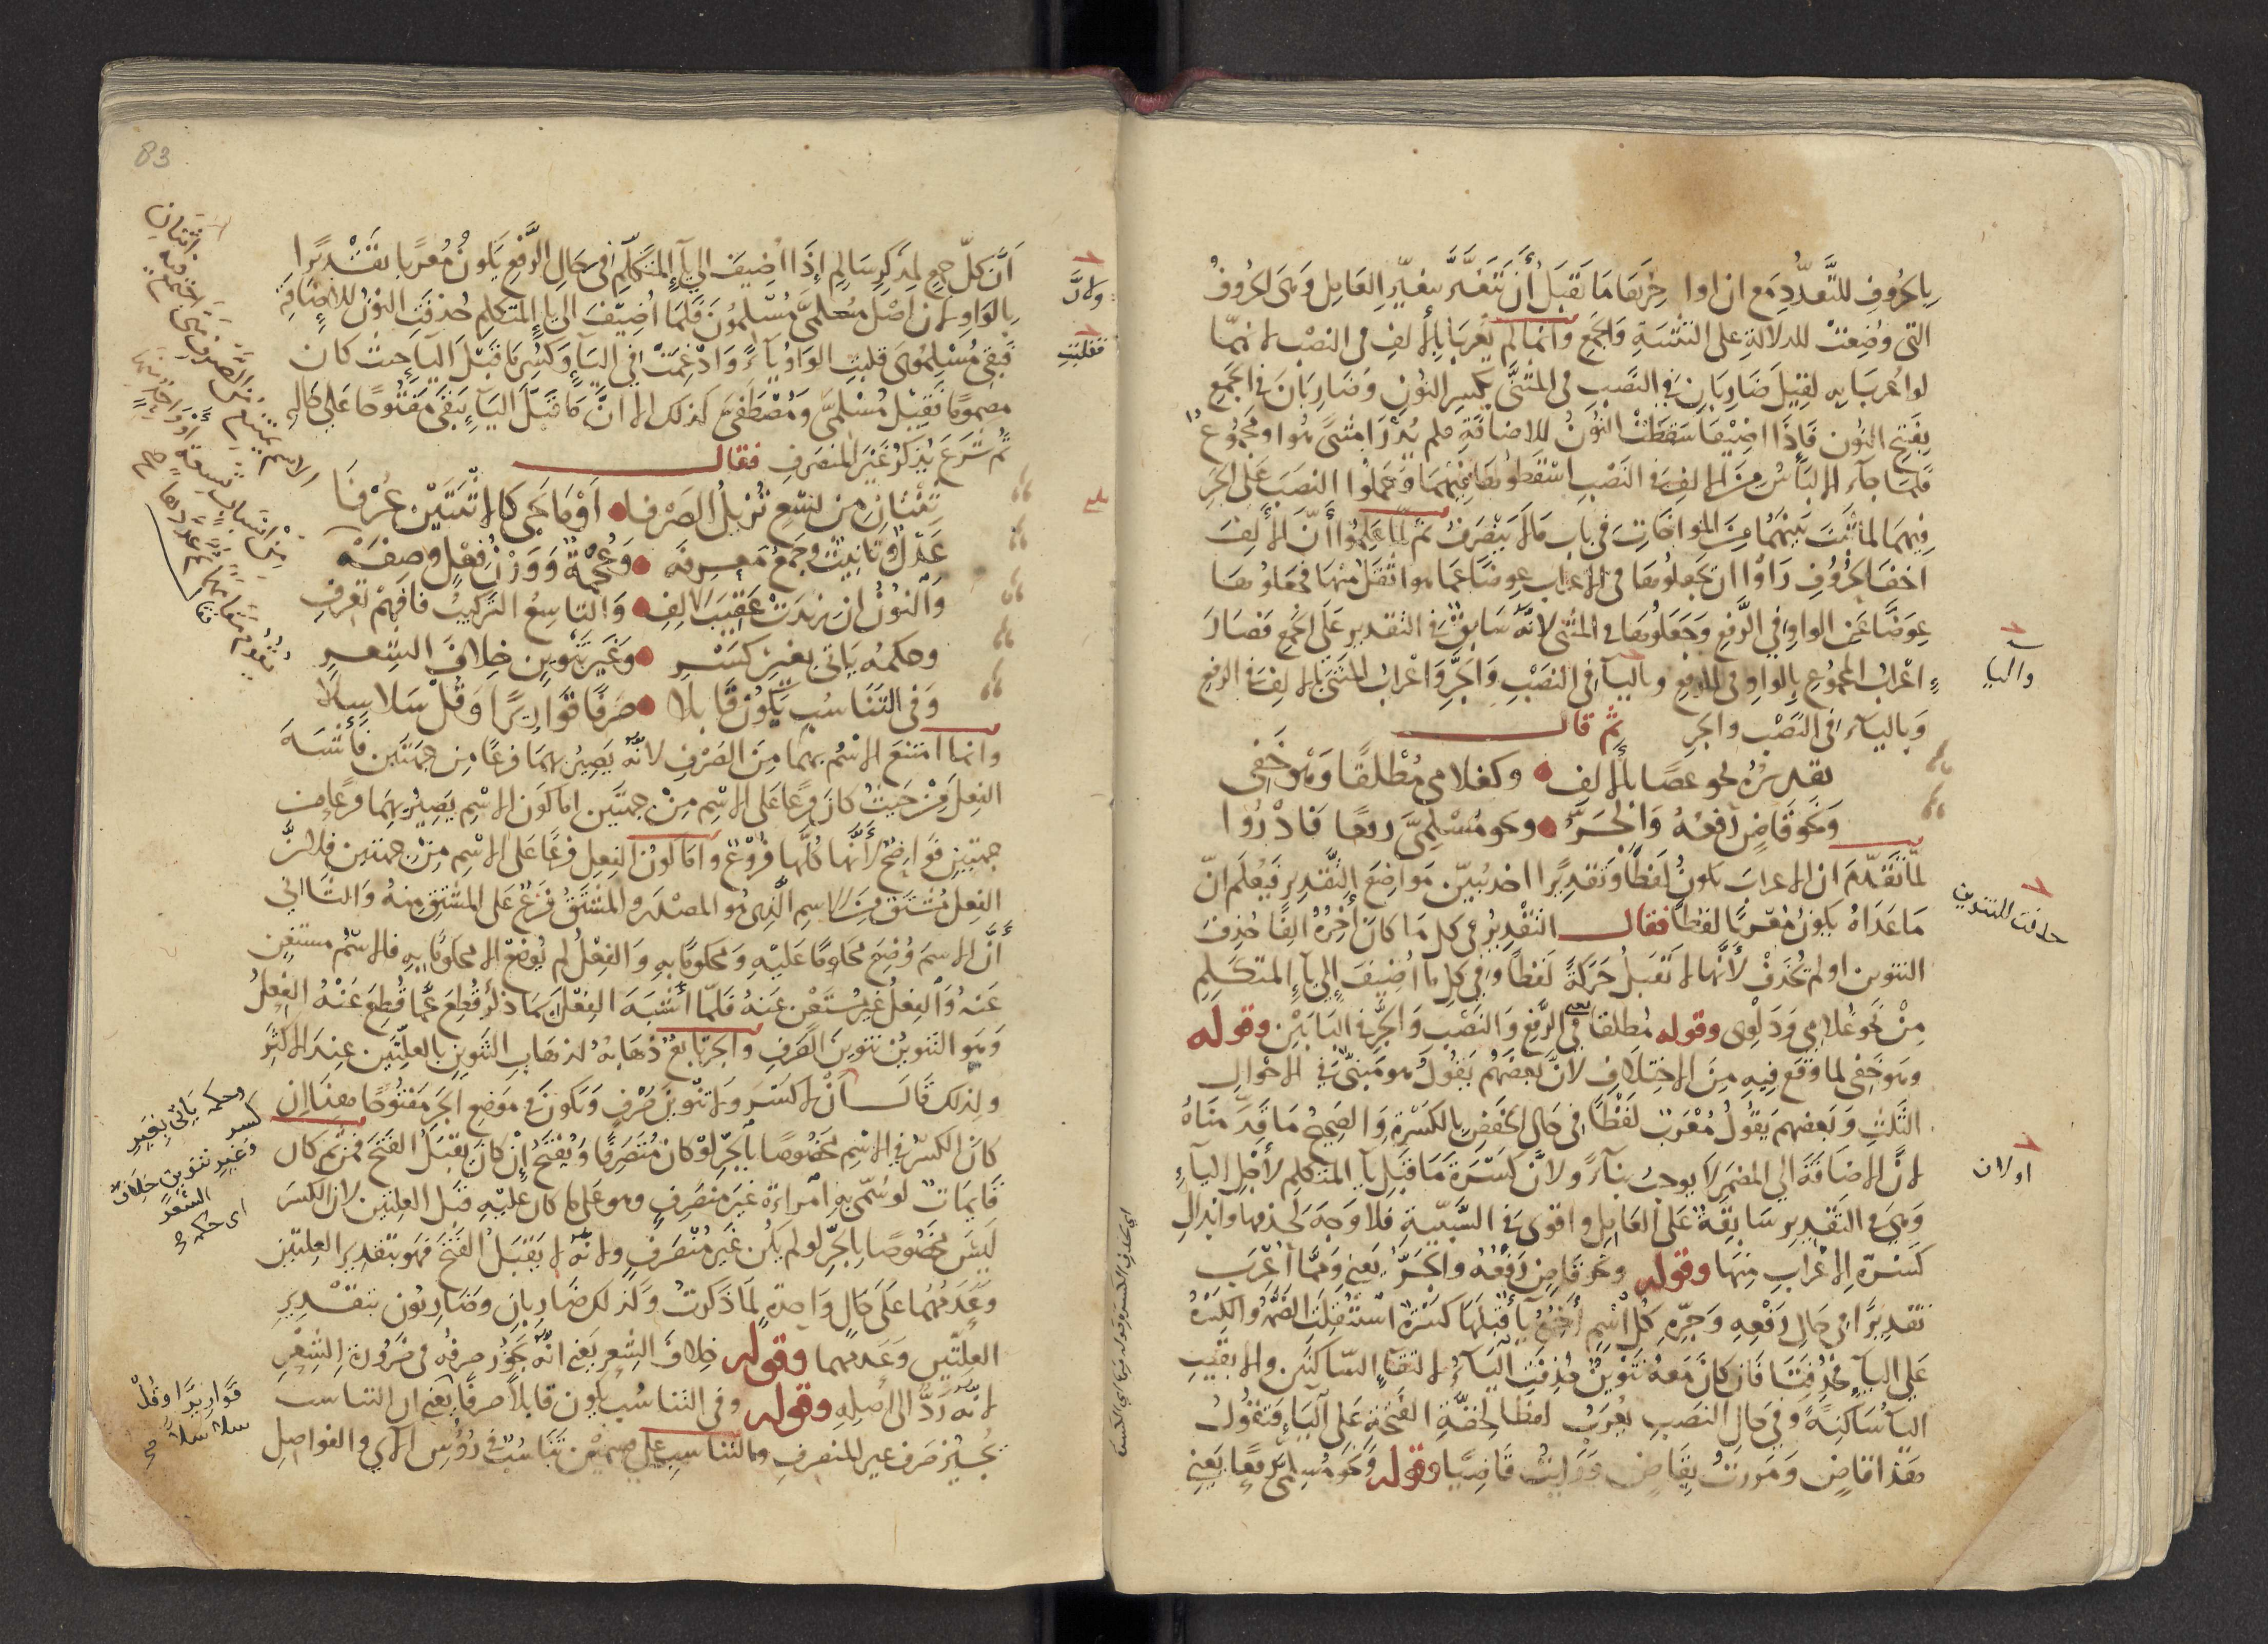 بالحروف للتعدد مع ان اواخرها ما تقبل أن تتغير بتغير العامل وهى الحروف
التى وضعت للدلالة على التثنية والجمع وانما لم يعربا بالالف فى النصب لانهما
لو اعربا به لقيل ضاربان فى النصب فى المثنى بكسر النون وضاربان فى الجمع
بفتح النون فاذا اضيفا سقطت النون للاضافة فلم يُدْرَ امثنىً هوا ومجموع
فلما جآء الالباس من الالف فى النصب اسقطوها فيهما وحملوا النصب على الجر
فيهما لما ثبت بينهما من المواخات فى باب مالا ينصرف ثم لما علموا أنّ الألف
اخف الحروف رأوا ان يجعلوها فى الاعراب عوضا عما هو اثقل منها فجعلوها
عوضا عن الواو فى الرفع وجعلوها فى المثنى لانه سابق فى التقدير على الجمع فصار
اعراب المجموع بالواو فى الرفع وباليآء فى النصب والجر واعراب المثنى بالالف فى الرفع
وباليآء فى النصب والجر ثم قال
تقديره نحو عصًا بالالف وكغلامى مطلقًا وهو خفى
ونحو قاضٍ رفعُهُ والجرُّ ونحو مسلمىَّ رفعا فادْرُوا
لمّا تقدّم ان الاعراب يكون لفظًا وتقديرًا اخذ يُبيّن مواضع التقدير فيُعلم انّ
ما عداه يكون معربًا لفظًا فقال التقدير فى كل ما كان آخرُهُ الفًا حُذِفَ
التنوين او لم يُحذَفْ لأنّها لا تقبل حركةً لفظًا وفى كل ما اضيف إلى يآء المتكلم
مِنْ نحو غلامى ودلوى وقوله مطلقا يعنى فى الرفع والنصب والجرّ فى البابين وقوله
وهو خفى لما وقع فيه من الاختلاف لانّ بعضهم يقول هو مبنىّ فى الاحوال
الثلث وبعضهم يقول معرب لفظًا فى حال الخفض بالكسرة والصحيح ما قدّمناهُ
لانّ الاضافة الى المضمر لا يوجب بنآءً ولانّ كسرة ما قبل يآ المتكلم لأجل اليآء
وهى فى التقدير سابقة على العامل واقوى فى السّببيّة فلا وجه لحذفها وابدال
كسرة الاعراب منها وقوله ونحو قاضٍ رفعُهُ والجرّ يعنى وممّا اُعْرِبَ
تقديرًا فى حال رفعه وجرّهِ كُلّ اسْمٍ آخرُهُ يآءٌ قبلها كسرة استُثقلت الضمّة والكسرة
على اليآء فحُذِفَتا فان كان معهُ تنوينٌ حُذِفَت اليآءُ لالتقآء السّاكنين والا بقيت
اليآءُ ساكنةً وفى حال النصب يُعرَبُ لفظا لخفّة الفتحة على اليآء فتقولُ
هذا قاضٍ ومررتُ بقاضٍ ورأيتُ قاضيًا وقوله ونحو مُسلمىَّ رفعًا يعنى
والياء
حذفت التنوين
اولان
83
أنّ كلّ جمعٍ لمذكرٍ سالمٍ إذا اضيف الى يآء المتكلّم فى حال الرّفع يكونُ مُعربًا تقديرًا
بالواو لان اصل مسلمىَّ مُسْلمُونَ فلما اُضيفَ الى يآء المتكلم حُذِفَت النونُ للاضافة
فبقى مُسْلمُوىَ قلبت الواوُ يآءً وادغمت فى اليآء وكُسِر ما قبل اليآء حيث كان
مضمومًا فقيل مُسْلمىَّ ومُصْطَفىَّ كذلك الا انّ ما قبل اليآء يبقى مفتوحًا على حاله
ثم شرع يذكُر غير المنصرف فقال
ثنتان من تسع تُزيلُ الصرفا اَوْما حَكى كالاثنتين عُرْفَا
عَدْلٌ وتأنيثٌ وجمعٌ معرفه وعُجْمَةٌ ووزنُ فِعْلٍ وصفَهْ
والنونُ ان زيدت عُقَيبَ الالف والتاسعُ التركيبُ فافهم تعرف
وحكمُه ياتى بغير كسر وغير تنوينٍ خلافَ الشعر
وفى التناسُب يكونُ قابلا صرفًا قواريرًا وقُلْ سلاسلا
وانما امتنع الاسْمُ بهما من الصرف لانّه يصيرُ بهما فرعًا من جهتين فأشبه
الفعل من حيثُ كان فرعًا على الاسم مِنْ جهتين اما كون الاسْم يصيرُ بهما فرعًا من
جهتين فواضحٌ لأنّها كلّها فروعٌ واما كونُ الفعل فرعًا على الاسْم مِنْ جهتين فلانّ
الفعل مُشتقٌ من الاسم الّذى هو المصدر والمشتقُّ فرعٌ على المشتق منهُ والثانى
أنّ الاسمَ وُضِعَ محكومًا عليه ومحكومًا به والفعْلُ لم يُوضَعْ الا محكومًا به فالاسْمُ مستغنٍ
عنه والفعلُ غيرُ مُستغنٍ عنه فلمّا أشبه الفعْلَ بما ذُكِر قُطِعَ عمّا قُطِعَ عنْهُ الفعلُ
وهو التنوينُ تنوينُ الصرف والجرّ تابعٌ ذهابهُ لذهاب التنوين بالعلّتين عند الاكثر
ولذلك قال أنْ لا كسْرَ ولا تنوينَ صَرْفٍ ويكون فى موضع الجر مفتُوحًا هذا ان
كان الكسرُ فى الاسْم مخصُوصًا بالجرّ لو كان مُنصرفًا ويُفْتَحُ إن كان يقبَلُ الفتح فمن ثمّ كان
قايماتٌ لو سُمّى به امراءة غير منصرفٍ وهو على ما كان عليه قبل العلتين لان الكسر
ليس مخصُوصًا بالجرّ لو لم يكن غير منصرفٍ ولانّه لا يقبلُ الفتح فهو بتقدير العلّتين
وعدمهما على حالٍ واحدةٍ لما ذكرتُ وكذلك ضاربان وضاربون بتقدير
العلّتين وعدمهما وقوله خلافَ الشعر يعنى انّه يجُوز صرفُه فى ضرورة الشعْرِ
لانّه ردٌّ الى اصله وقوله وفى التناسُب يكون قابلاً صرفًا يعنى ان التناسب
يُجيز صرف غير المنصرف والتناسب على قسمين تناسُبٌ فى رؤُس الآى والفواصل
ولانّ
فقلبت
وحكمه ياتى بغير
كسر
وغير تنوين خلاف
الشعر
قواريرًا وقُلْ
سلاسلا صح